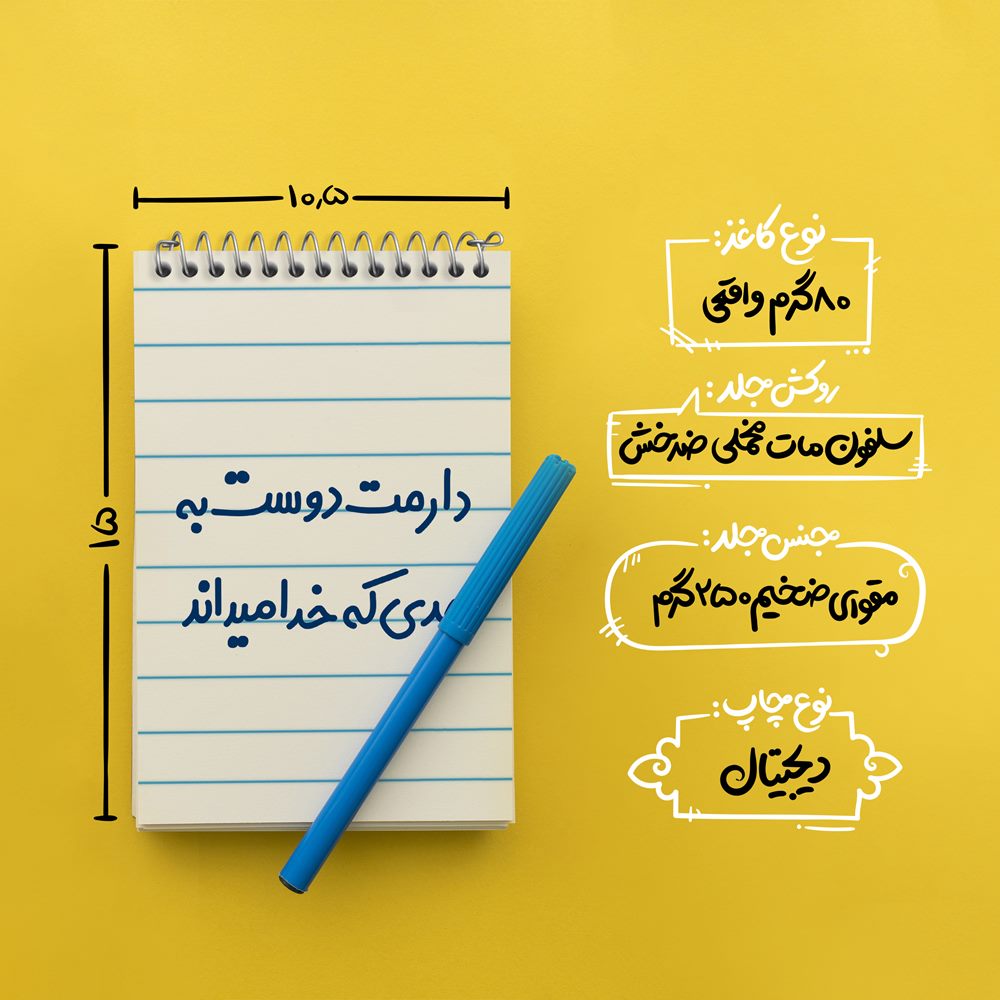 ۱۰٫۵
۱۵
دارمت دوست به
که خدا میداند
نوع کاغذ:
۸۰ گرم واقعی
روکش جلد:
سلفون مات مخملی ضدخش
جنس جلد:
مقوای ضخیم ۲۵۰ گرم
نوع چاپ:
دیجیتال